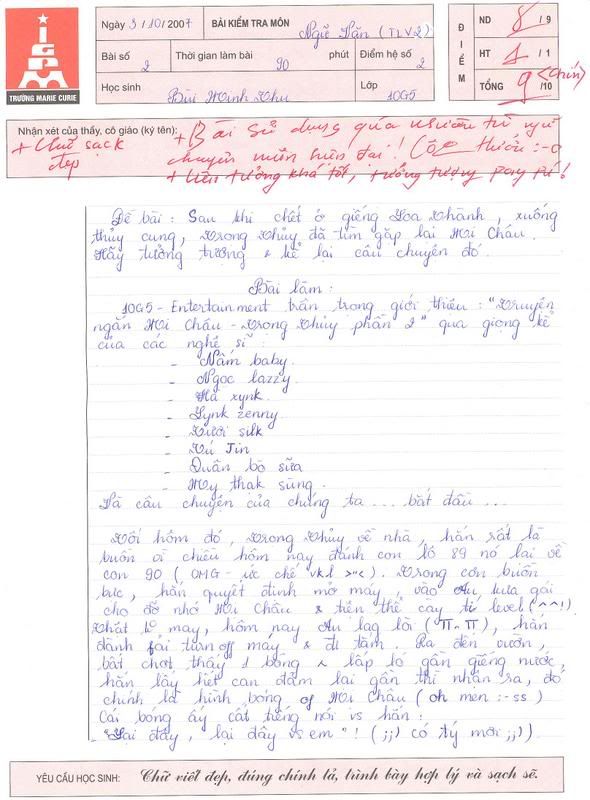 TRƯỜNG MARIE CURIE
Ngày 3/10/2007 BÀI KIỂM TRA MÔN Ngữ Văn (TLV2)
Bài số 2 Thời gian làm bài 90 phút Điểm hệ số 2
Học sinh Bùi Minh Thu Lớp 10G5
ĐIỂM
ND 8 / 9
HT 1 / 1
TỔNG 9 /10 (chín)
Nhận xét của thầy, cô giáo (ký tên):
+ Chữ sạch đẹp
+ Bài sử dụng quá nhiều từ ngữ
chuyên môn hiện đại! (Cô thiếu :-o
+ liên tưởng khá tốt, tưởng tượng pay pú!
Đề bài : Sau khi chết ở giếng Loa Thành, xuống
thủy cung, Trọng Thủy đã tìm gặp lại Mị Châu.
Hãy tưởng tượng & kể lại câu chuyện đó.
Bài làm :
10G5 - Entertainment trân trọng giới thiệu : "Truyện
ngắn Mị Châu - Trọng Thủy phần 2" qua giọng kể
của các nghệ sĩ :
- Nấm baby.
- Ngọc lazzy.
- Hà xynk.
- Lynk zenny.
- Tười silk
- Tú Jin
- Quân bò sữa
- My thak sùng.
Và câu chuyện của chúng ta ... bắt đầu ...
Tối hôm đó, Trọng Thủy về nhà, hắn rất là
buồn vì chiều hôm nay đánh con lô 89 nó lại về
con 90 (OMG - ức chế vkl >"<). Trong cơn buồn
bực, hắn quyết định mở máy, vào Au, lừa gái
cho đỡ nhớ Mị Châu & tiện thể cày tí level (^^!).
Nhật lệ may, hôm nay Au lag lòi (π.π), hắn
đành fải turn off máy & đi tắm. Ra đến vườn,
bất chợt thấy 1 bóng lấp ló gần giếng nước,
hắn lấy hết can đảm lại gần thì nhận ra, đó
chính là hình bóng of Mị Châu (oh men :-ss)
Cái bóng ấy cất tiếng nói vs hắn :
"Lại đây, lại đây vs em"! (;;) có tý mời ;;)).
YÊU CẦU HỌC SINH: Chữ viết đẹp, đúng chính tả, trình bày hợp lý và sạch sẽ.